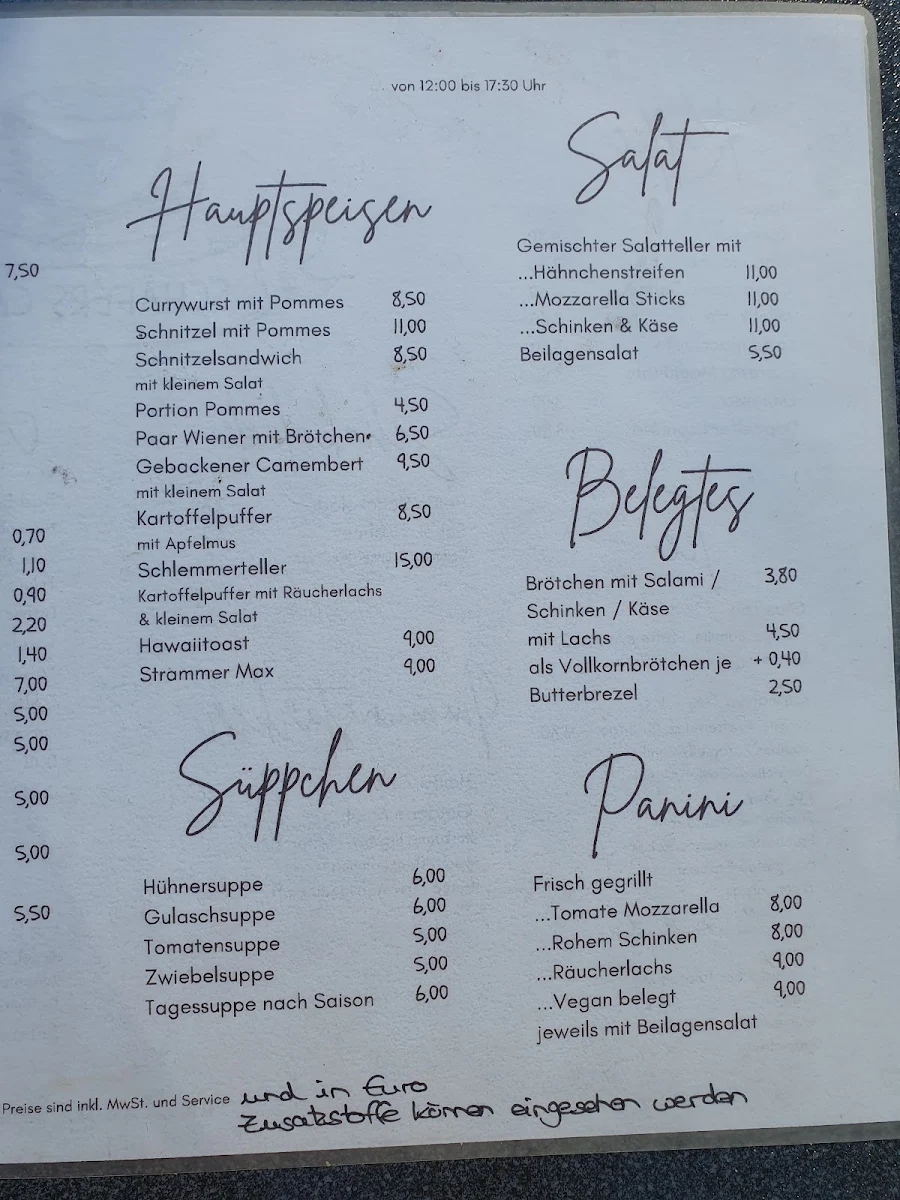 von 12:00 bis 17:30 Uhr
7,50
0,70
1,10
0,90
2,20
1,40
7,00
5,00
5,00
5,00
5,00
5,50
Hauptspeisen
Currywurst mit Pommes 8,50
Schnitzel mit Pommes 11,00
Schnitzelsandwich 8,50
mit kleinem Salat
Portion Pommes 4,50
Paar Wiener mit Brötchen 6,50
Gebackener Camembert 9,50
mit kleinem Salat
Kartoffelpuffer 8,50
mit Apfelmus
Schlemmerteller 15,00
Kartoffelpuffer mit Räucherlachs
& kleinem Salat
Hawaiitoast 9,00
Strammer Max 9,00
Süppchen
Hühnersuppe 6,00
Gulaschsuppe 6,00
Tomatensuppe 5,00
Zwiebelsuppe 5,00
Tagessuppe nach Saison 6,00
Salat
Gemischter Salatteller mit
...Hähnchenstreifen 11,00
...Mozzarella Sticks 11,00
...Schinken & Käse 11,00
Beilagensalat 5,50
Belegtes
Brötchen mit Salami / 3,80
Schinken / Käse
mit Lachs 4,50
als Vollkornbrötchen je + 0,40
Butterbrezel 2,50
Panini
Frisch gegrillt
...Tomate Mozzarella 8,00
...Rohem Schinken 8,00
...Räucherlachs 9,00
...Vegan belegt 9,00
jeweils mit Beilagensalat
Preise sind inkl. MwSt. und Service und in Euro
Zusatzstoffe können eingesehen werden